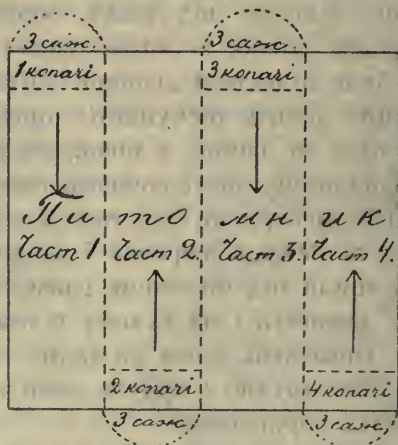 3 саж. 3 саж.
1 копачі 3 копачі
Питомник
Част 1 Част 2. Част 3. Част 4.
2 копачі 4 копачі
3 саж. 3 саж.